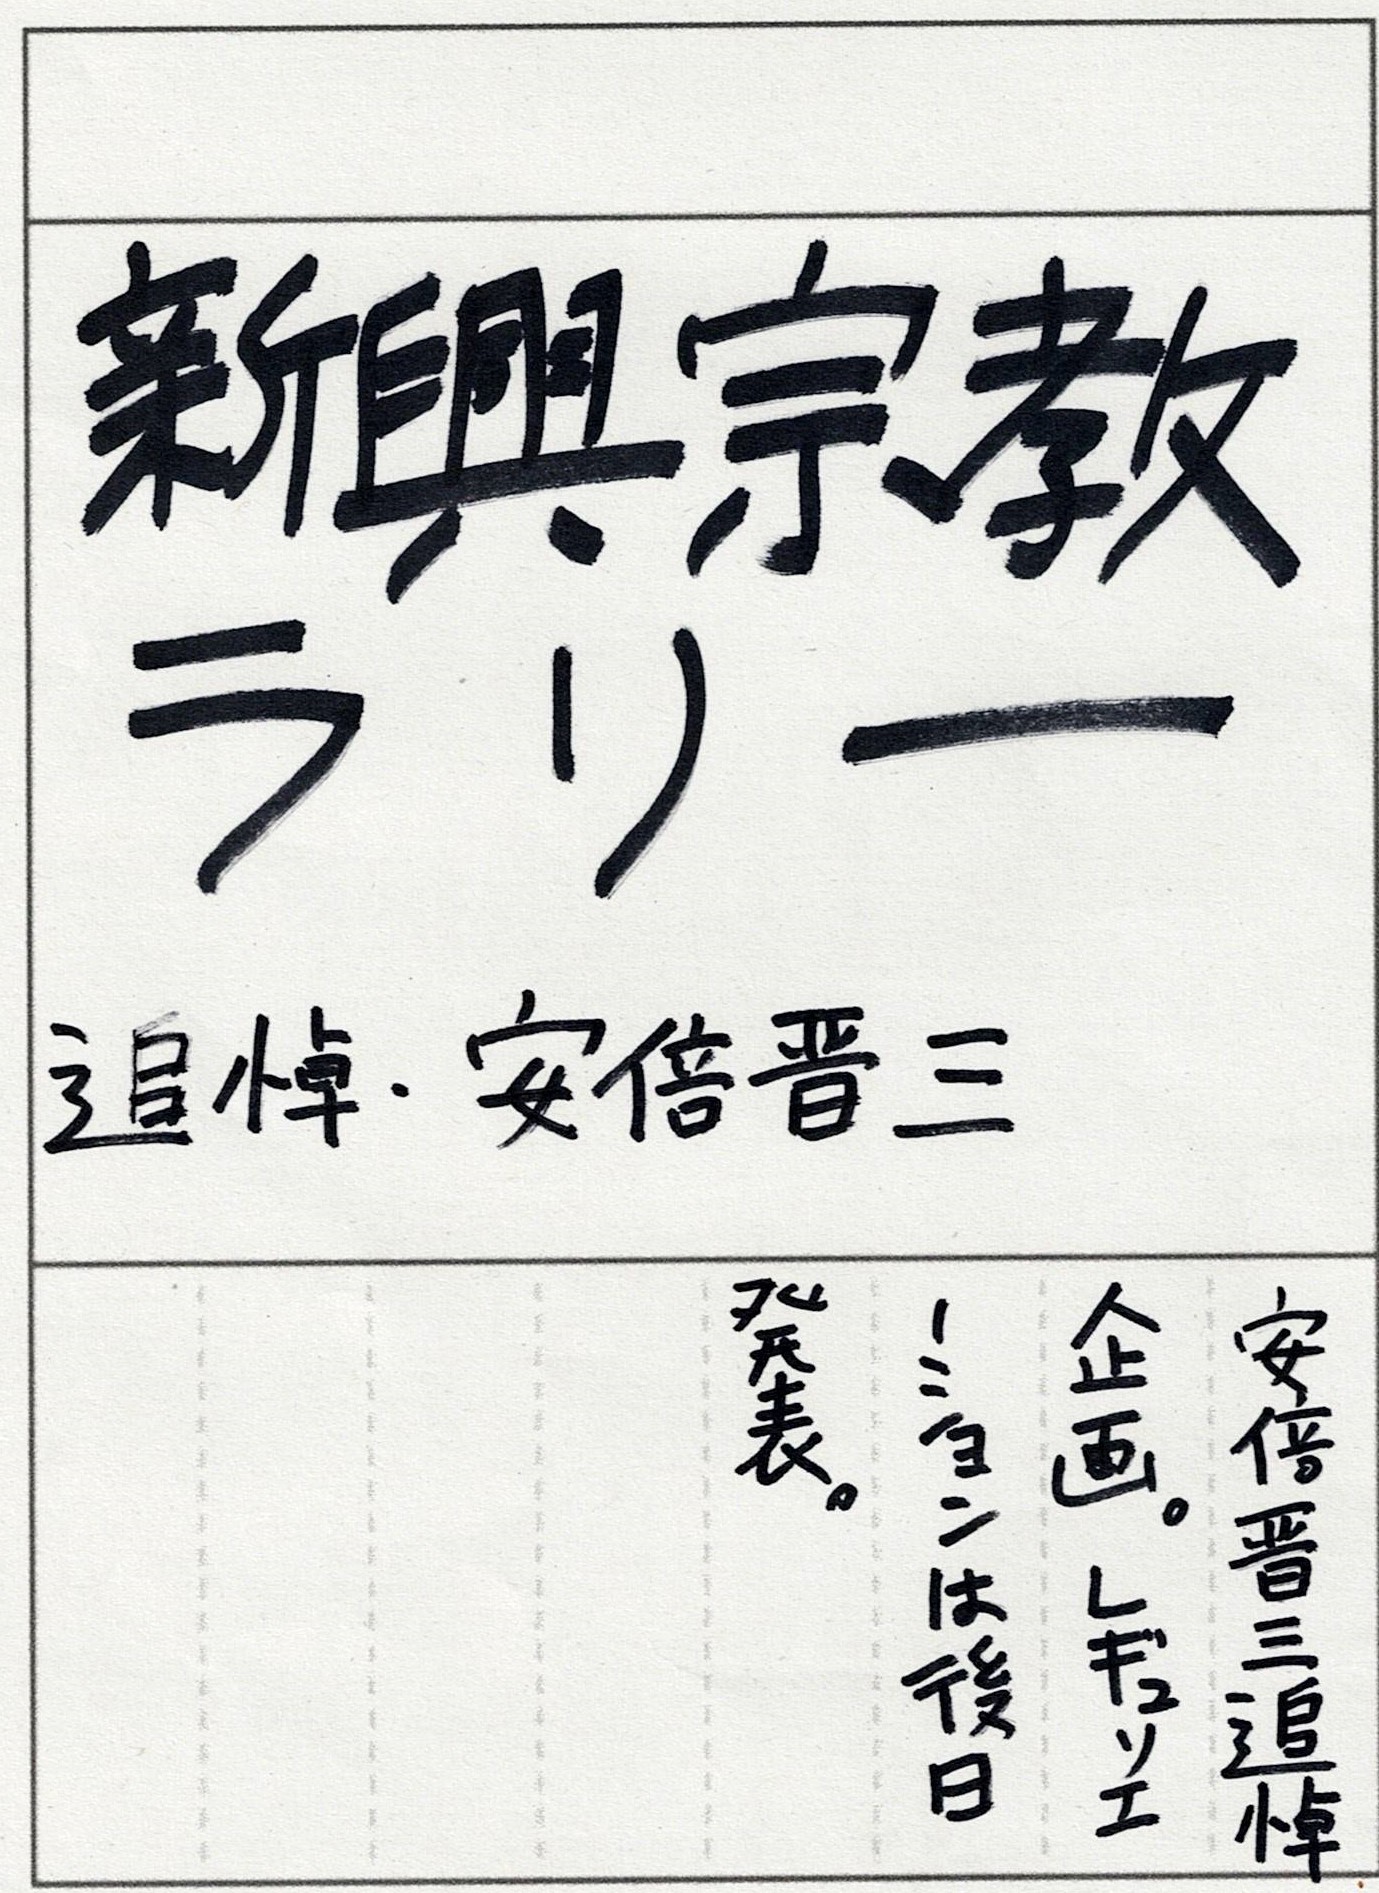 新興宗教
ラリー
追悼・安倍晋三
安倍晋三追悼
企画。レギュリエ
ーションは後日
発表。